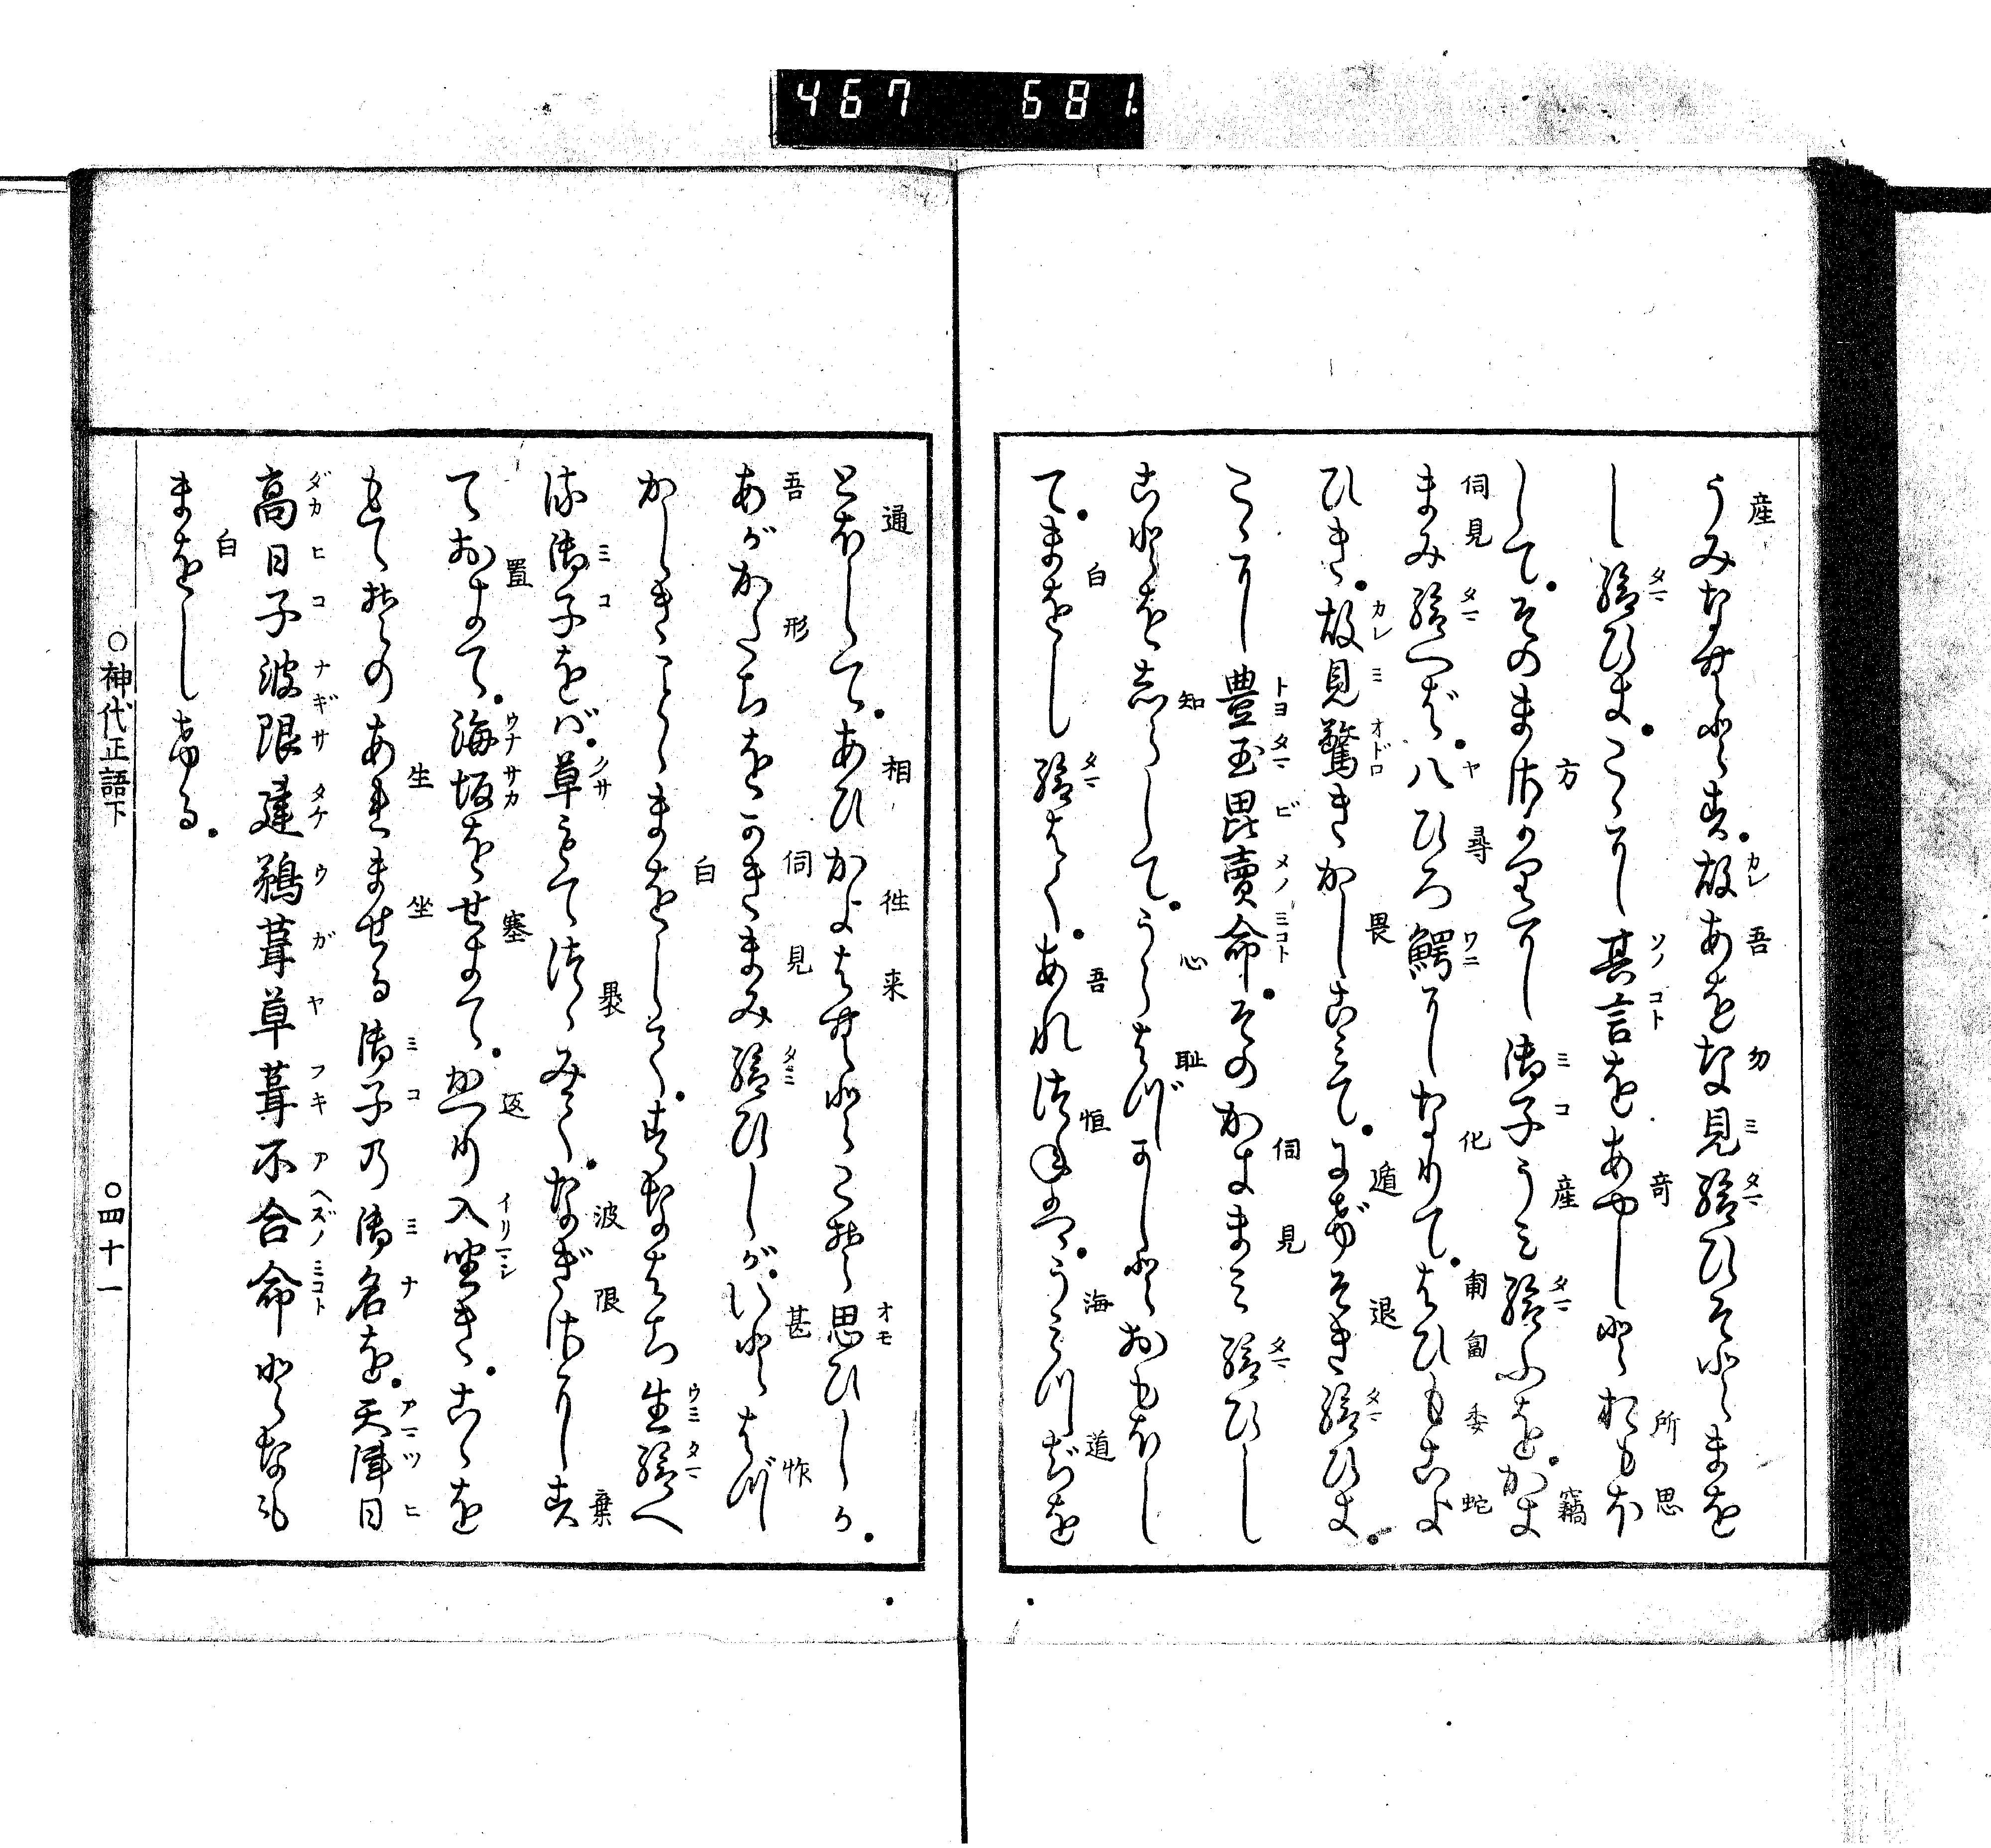 467 681.
うみなむとす。故あをな見給ひそとまを
し給ひき。こゝに其言をあやしとおもほ
して。そのまさかりに御子うみ給ふを。かき
まみ給へば。八ひろ鰐になりて。はひもこよ
ひき。故見驚きかしこみて。にげそき給ひき。
こゝに豊玉毘賣命。そのかきまみ給ひし
ことをしらして。うらはづかしとおもほし
て。まをし給はく。あれつねは。うみつぢを
とほして。あひかよはむとこそ思ひしか。
あがかたちをかきまみ給ひしが。いとはづ
かしきことゝまをして。すなはち生給へ
る御子をば。草もてつゝみて。なぎさにす
ておきて。海坂をせきて。かへり入坐き。こゝを
もてその あれませる御子乃御名を。天津日
高日子波限建鵜葺草葺不合命となも
まをしける。
○神代正語下
○四十一